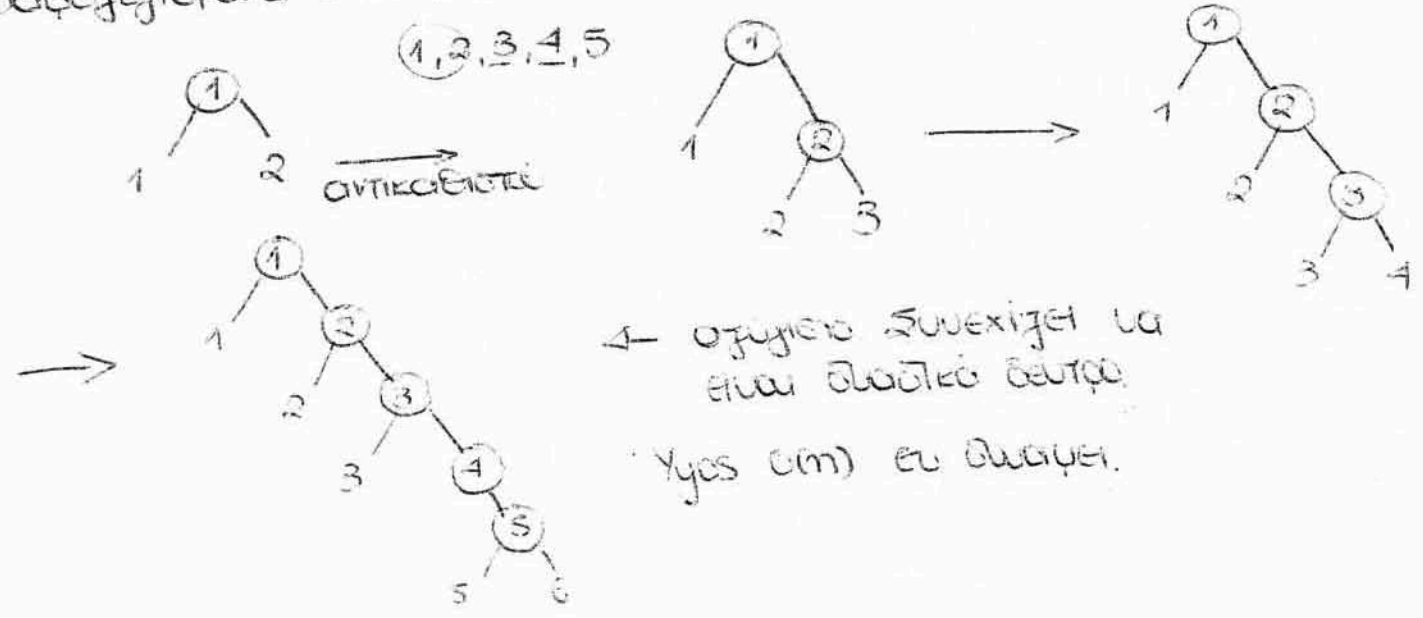 1, 2, 3, 4, 5
1
1 2
αντικαθιστά
1
1 2
2 3
1
1 2
2 3
3 4
1
1 2
2 3
3 4
5
5 6
Συνεχίζει να
είναι δυαδικό δέντρο.
Ύψος O(n) εν δυνάμει.